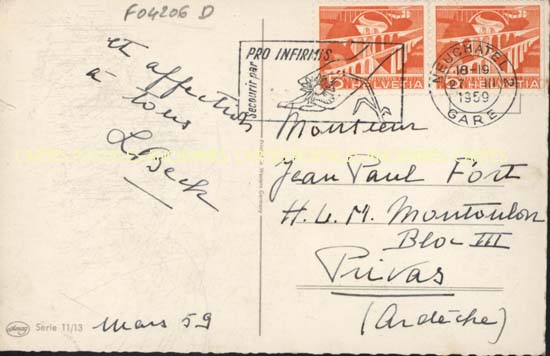 F04206 D
et affection
à tous
L. Beck
Mars 59
Série 11/13
PRO INFIRMIS
Secourir par
HELVETIA
HELVETIA
NEUCHÂTEL 2
18-19
1959
GARE
Monsieur
Jean Paul Fort
H.L.M. Montoulon
Bloc III
Privas
(Ardèche)